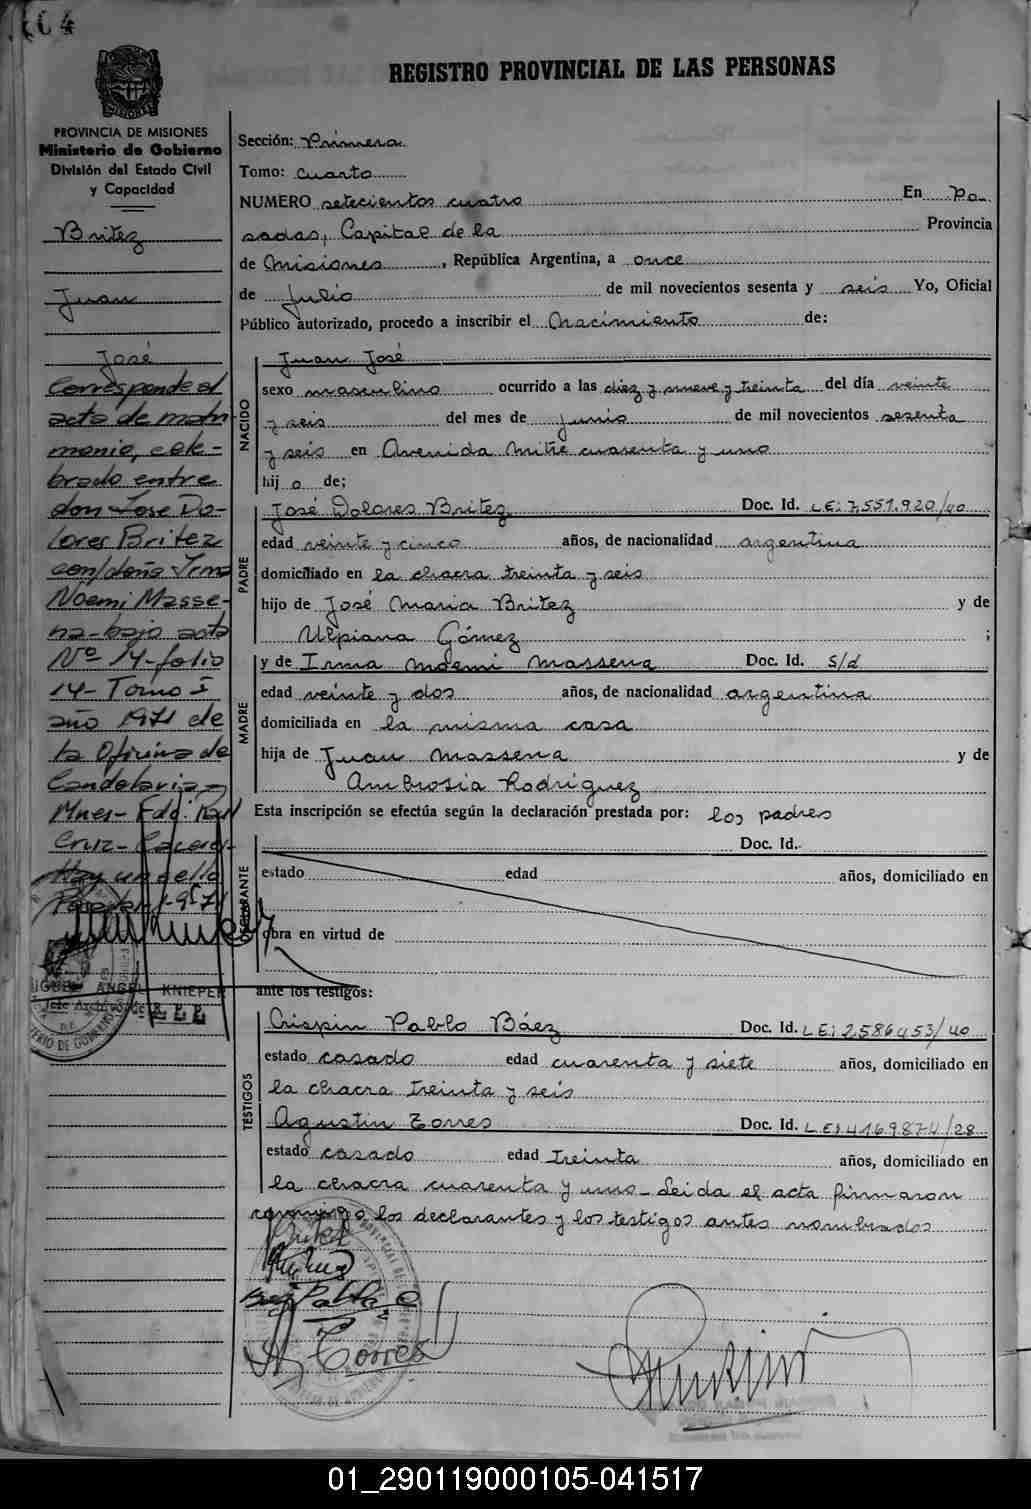 604
REGISTRO PROVINCIAL DE LAS PERSONAS
PROVINCIA DE MISIONES
Ministerio de Gobierno
División del Estado Civil
y Capacidad
Britez
Juan
José
Corresponde al
acta de matri-
monio, cele-
brado entre
don Jose Do-
lores Britez
con/doña Irma
Noemi Masse-
na-bajo acta
Nº 14-folio
14-Tomo I
año 1971 de
la Oficina de
Candelaria-
Mnes-Fdo:
Cruz-
Hay un sello
ANGEL KNIEPER
Sección: Primera
Tomo: Cuarto
NUMERO setecientos cuatro En Po-
sadas, Capital de la Provincia
de Misiones, República Argentina, a once
de Julio de mil novecientos sesenta y seis Yo, Oficial
Público autorizado, procedo a inscribir el Nacimiento de:
NACIDO
Juan José
sexo masculino ocurrido a las diez y nueve y treinta del día veinte
y seis del mes de junio de mil novecientos sesenta
y seis en Avenida Mitre cuarenta y uno
hij o de;
PADRE
José Dolores Britez Doc. Id. LE: 7.551.920/40
edad veinte y cinco años, de nacionalidad argentina
domiciliado en la chacra treinta y seis
hijo de José Maria Britez y de
Ulpiana Gómez ;
MADRE
y de Irma Noemi Massena Doc. Id. S/d
edad veinte y dos años, de nacionalidad argentina
domiciliada en la misma casa
hija de Juan Massena y de
Ambrosia Rodríguez
Esta inscripción se efectúa según la declaración prestada por: los padres
Doc. Id.
estado edad años, domiciliado en
obra en virtud de
ante los testigos:
TESTIGOS
Crispin Pablo Báez Doc. Id. LE: 2586453/40
estado casado edad cuarenta y siete años, domiciliado en
la chacra treinta y seis
Agustin Torres Doc. Id. LE: 4169874/28
estado casado edad treinta años, domiciliado en
la chacra cuarenta y uno- Leida el acta firmaron
conmigo los declarantes y los testigos antes nombrados
Torres
01_290119000105-041517